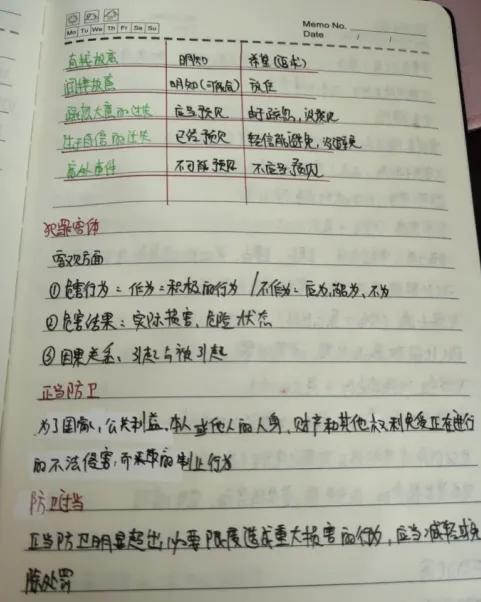 Memo No.
Mo Tu We Th Fr Sa Su
Date / /
直接故意 明知 希望(追求)
间接故意 明知(可能会) 放任
疏忽大意的过失 应当预见 由于疏忽,没预见
过于自信的过失 已经预见 轻信能避免,没避免
意外事件 不可能预见 不应当预见
犯罪客体
客观方面
①危害行为:作为=积极的行为/不作为:应为,能为,不为
②危害结果:实际损害,危险状态
③因果关系:引起与被引起
正当防卫
为了国家,公共利益,本人或他人的人身,财产和其他权利免受正在进行
的不法侵害,而采取的制止行为
防卫过当
正当防卫明显超出必要限度造成重大损害的行为,应当减轻或免
除处罚